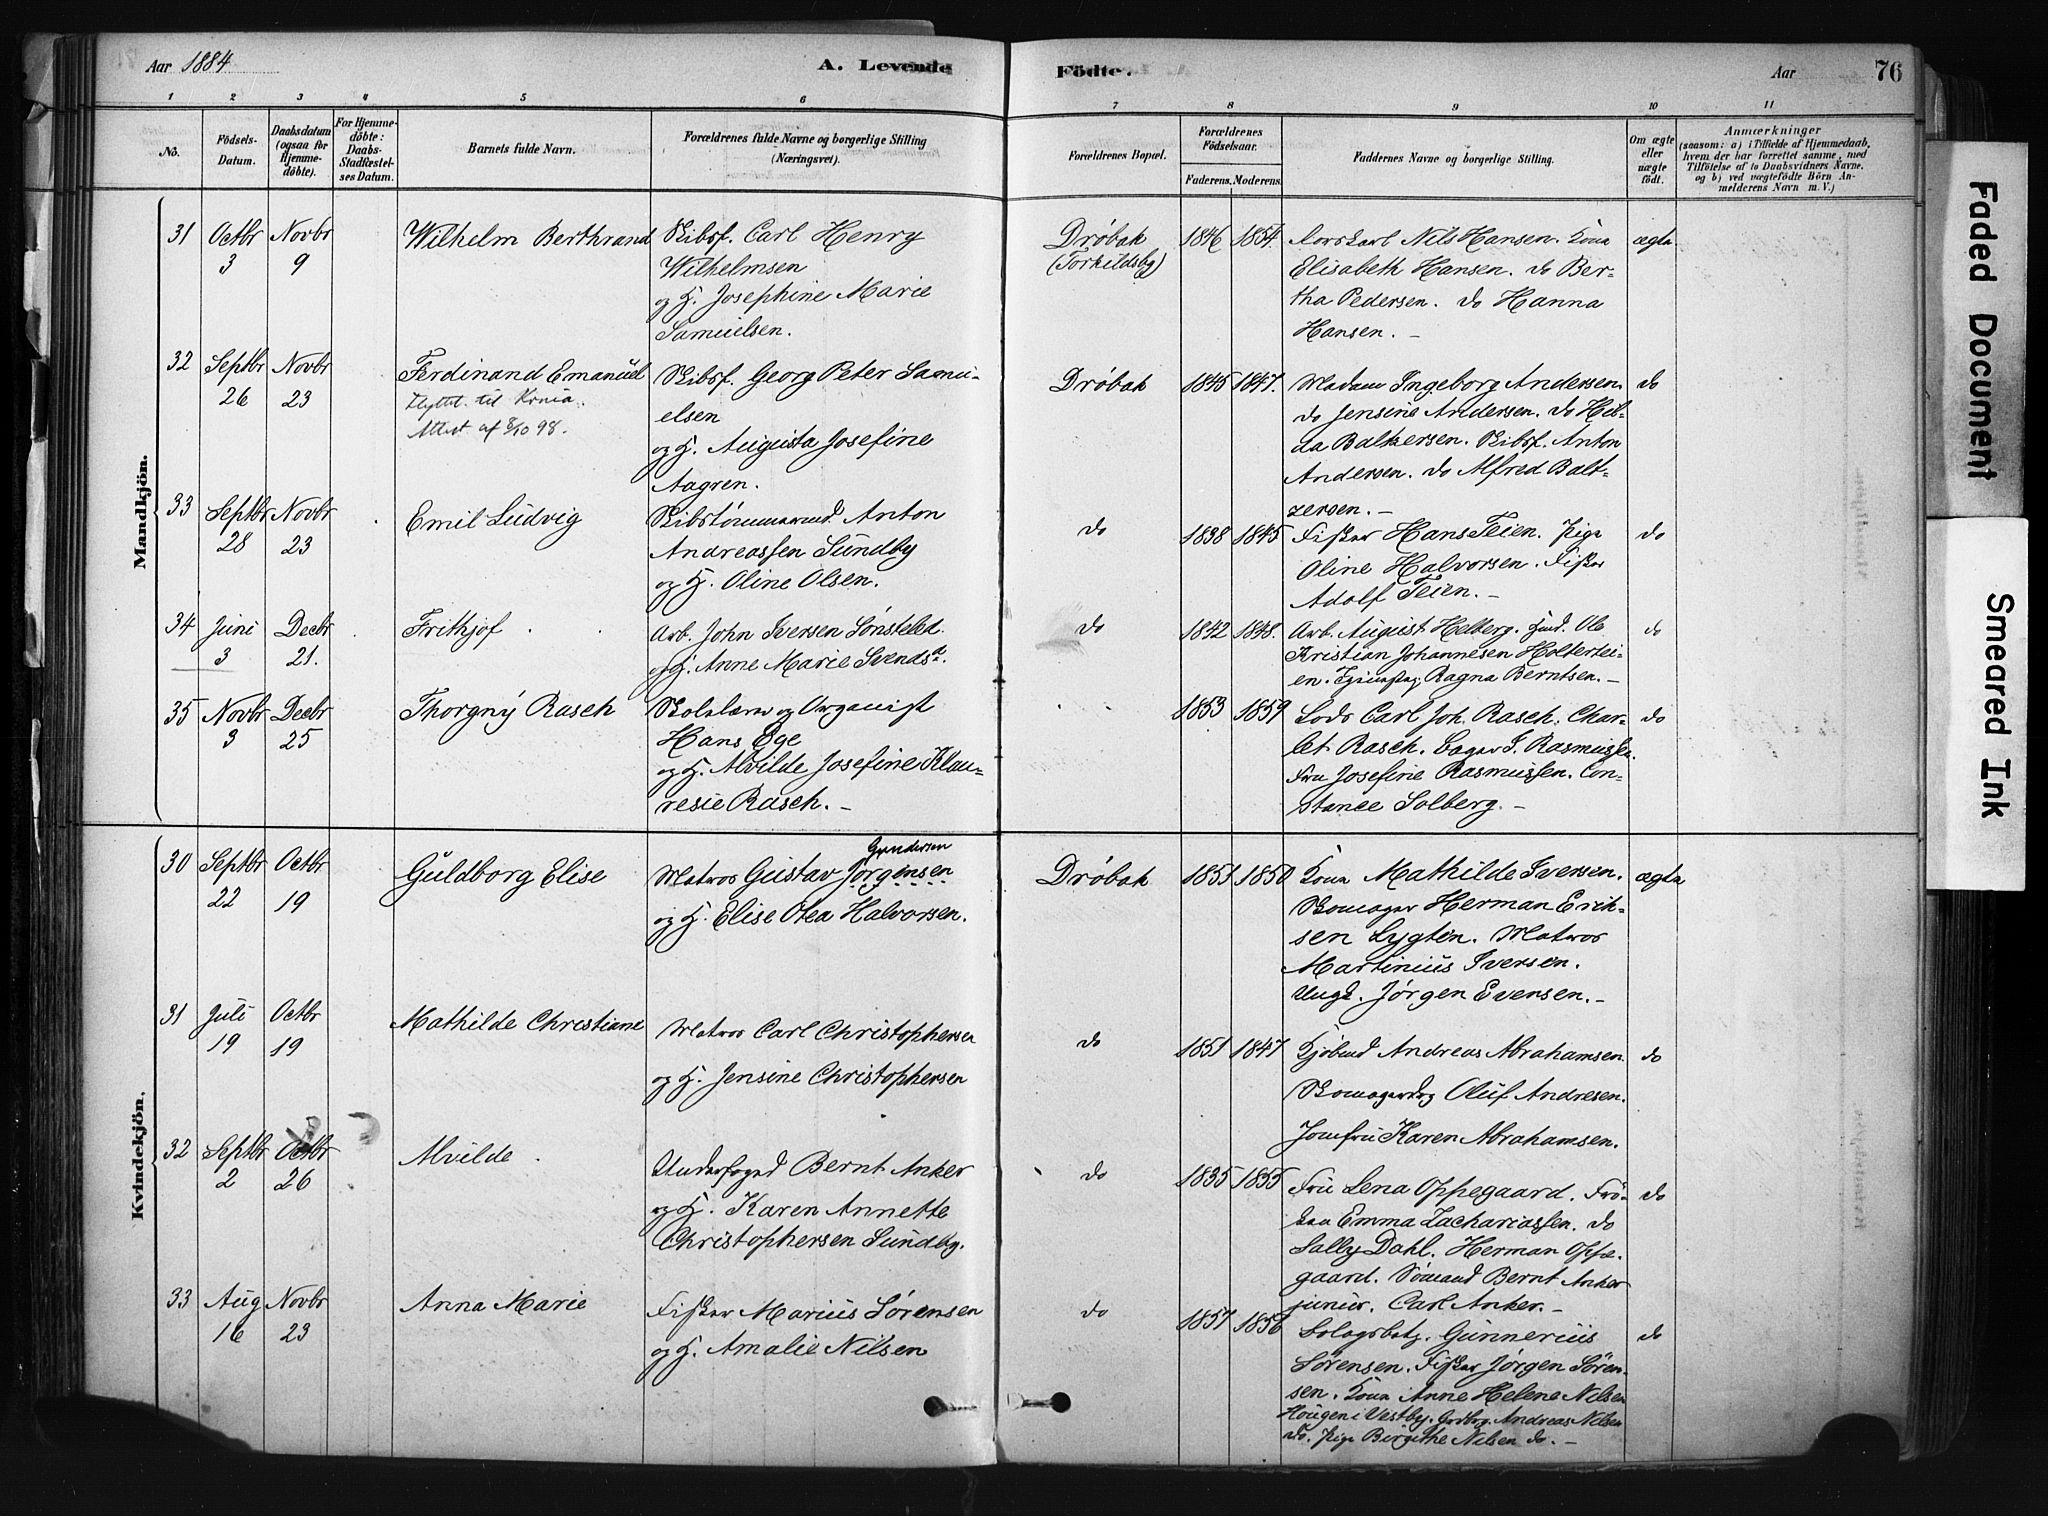 Aar 1884
A. Levende
Födte.
Aar
76
1 2 3 4 5 6 7 8 9 10 11
No.
Födsels-
Datum.
Daabsdatum
(ogsaa for
Hjemme-
döbte).
For Hjemme-
döbte:
Daabs-
Stadfæstel-
ses Datum.
Barnets fulde Navn.
Forældrenes fulde Navne og borgerlige Stilling
(Næringsvei).
Forældrenes Bopæl.
Forældrenes
Födselsaar.
Faderens. Moderens.
Faddernes Navne og borgerlige Stilling.
Om ægte
eller
uægte
födt.
Anmærkninger
(saasom: a) i Tilfælde af Hjemmedaab,
hvem der har forrettet samme, med
Tilföielse af to Daabsvidners Navne,
og b) ved uægtefödte Börn An-
melderens Navn m. V.)
Mandkjön.
31
Octbr
3
Novbr
9
Wilhelm Berthrand
Skibsf. Carl Henry
Wilhelmsen
og H. Josephine Marie
Samuelsen.
Drøbak
(Torkildsby)
1846 1854.
Nils Hansen. Kona
Elisabeth Hansen. do Ber-
tha Pedersen. do Hanna
Hansen. -
ægte
32
Septbr
26
Novbr
23
Ferdinand Emanuel
Flyttet til Krnia.
Attest af 8/10 98.
Skibsf. Georg Peter Samu-
elsen
og H. Augusta Josefine
Aagren.
Drøbak
1845 1847.
Madam Ingeborg Andersen.
do Jensine Andersen. do Hil-
da Baltzersen. Skibsf. Anton
Andersen. do Alfred Balt-
zersen. -
do
33
Septbr
28
Novbr
23
Emil Ludvig
Skibstømmermd. Anton
Andreassen Sundby
og H. Oline Olsen.
do
1838 1845
Fisker Hans Teien. Pige
Oline Halvorsen. Fisker
Adolf Teien. -
do
34
Juni
3
Decbr
21.
Frithjof
Arb. John Iversen Sønsteled.
og H. Anne Marie Svendsn.
do
1842 1848.
Arb. August Helberg. Ole
Kristian Johannesen Holtertei-
en. Ragna Berntsen. -
do
35
Novbr
3
Decbr
25
Thorgny Rasch
Skolelærer og Organist
Hans Ege
og H. Alvilde Josefine Klau-
resie Rasch. -
1853 1859
Lods Carl Joh. Rasch. Char-
lot Rasch. Bager J. Rasmussen.
Fru Josefine Rasmussen. Con-
stance Solberg. -
do
Kvindekjön.
30
Septbr
22
Octbr
19
Guldborg Elise
Gundersen
Matros Gustav Jørgensen
og H. Elise Otea Halvorsen.
Drøbak
1851 1850
Kona Mathilde Iversen.
Skomager Herman Erik-
sen Lygten. Matros
Martinius Iversen.
Ungk. Jørgen Evensen. -
ægte
31
Juli
19
Octbr
19
Mathilde Christiane
Matros Carl Christophersen
og H. Jensine Christophersen
do
1851 1847
Kjøbmd Andreas Abrahamsen.
Skomagerdrg Oluf Andresen.
Jomfru Karen Abrahamsen.
do
32
Septbr
2
Octbr
26
Alvilde
Underfoged Bernt Anker
og H. Karen Annette
Christophersen Sundby.
do
1835 1855
Fru Lena Oppegaard. Frö-
ken Emma Zachariassen. do
Sally Dahl. Herman Oppe-
gaard. Sømand Bernt Anker
junior. Carl Anker. -
do
33
Aug
16
Novbr
23
Anna Marie
Fisker Marius Sørensen
og H. Amalie Nilsen
do
1857 1856
Gunnerius
Sørensen. Fisker Jørgen Søren-
sen. Kona Anne Helene Nilsen
Hougen i Vestby. Grdbrg. Andreas Nilsen
do. Pige Birgithe Nilsen do. -
do
Faded Document
Smeared Ink